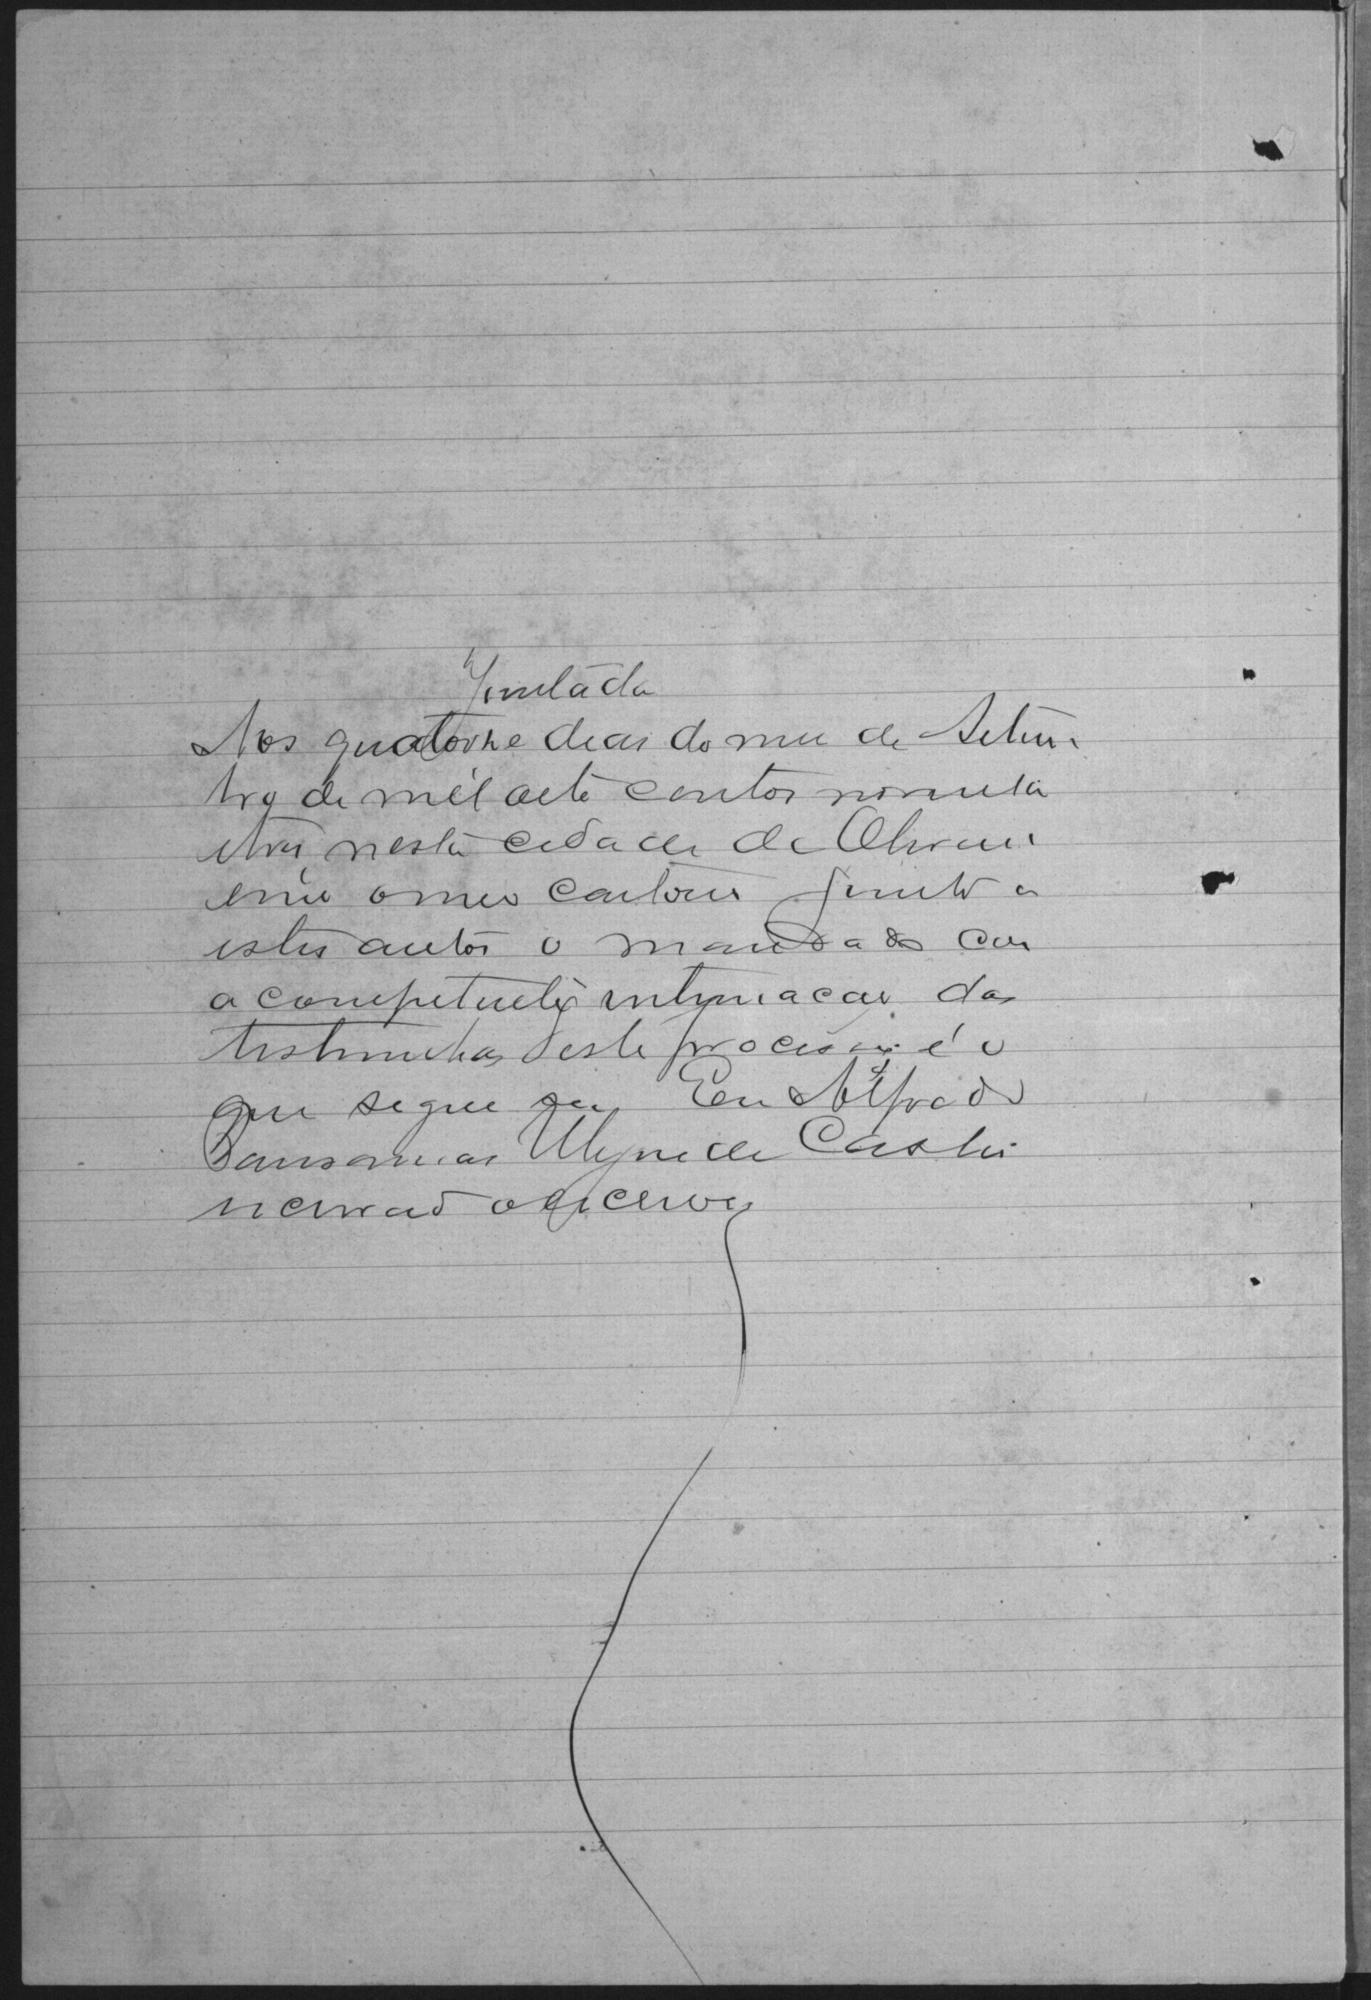 Juntada
Aos quatorze dias do mez de Setem-
bro de mil oito centos noventa
e tres nesta cidade de Oliveira
em o meo cartorio junto a
estes autos o mandado com
a competente intimacão das
testemunhas deste processo é o
que segue se, Eu Alfredo
Pausanias Alyne de Castro
escrivão o escrevy